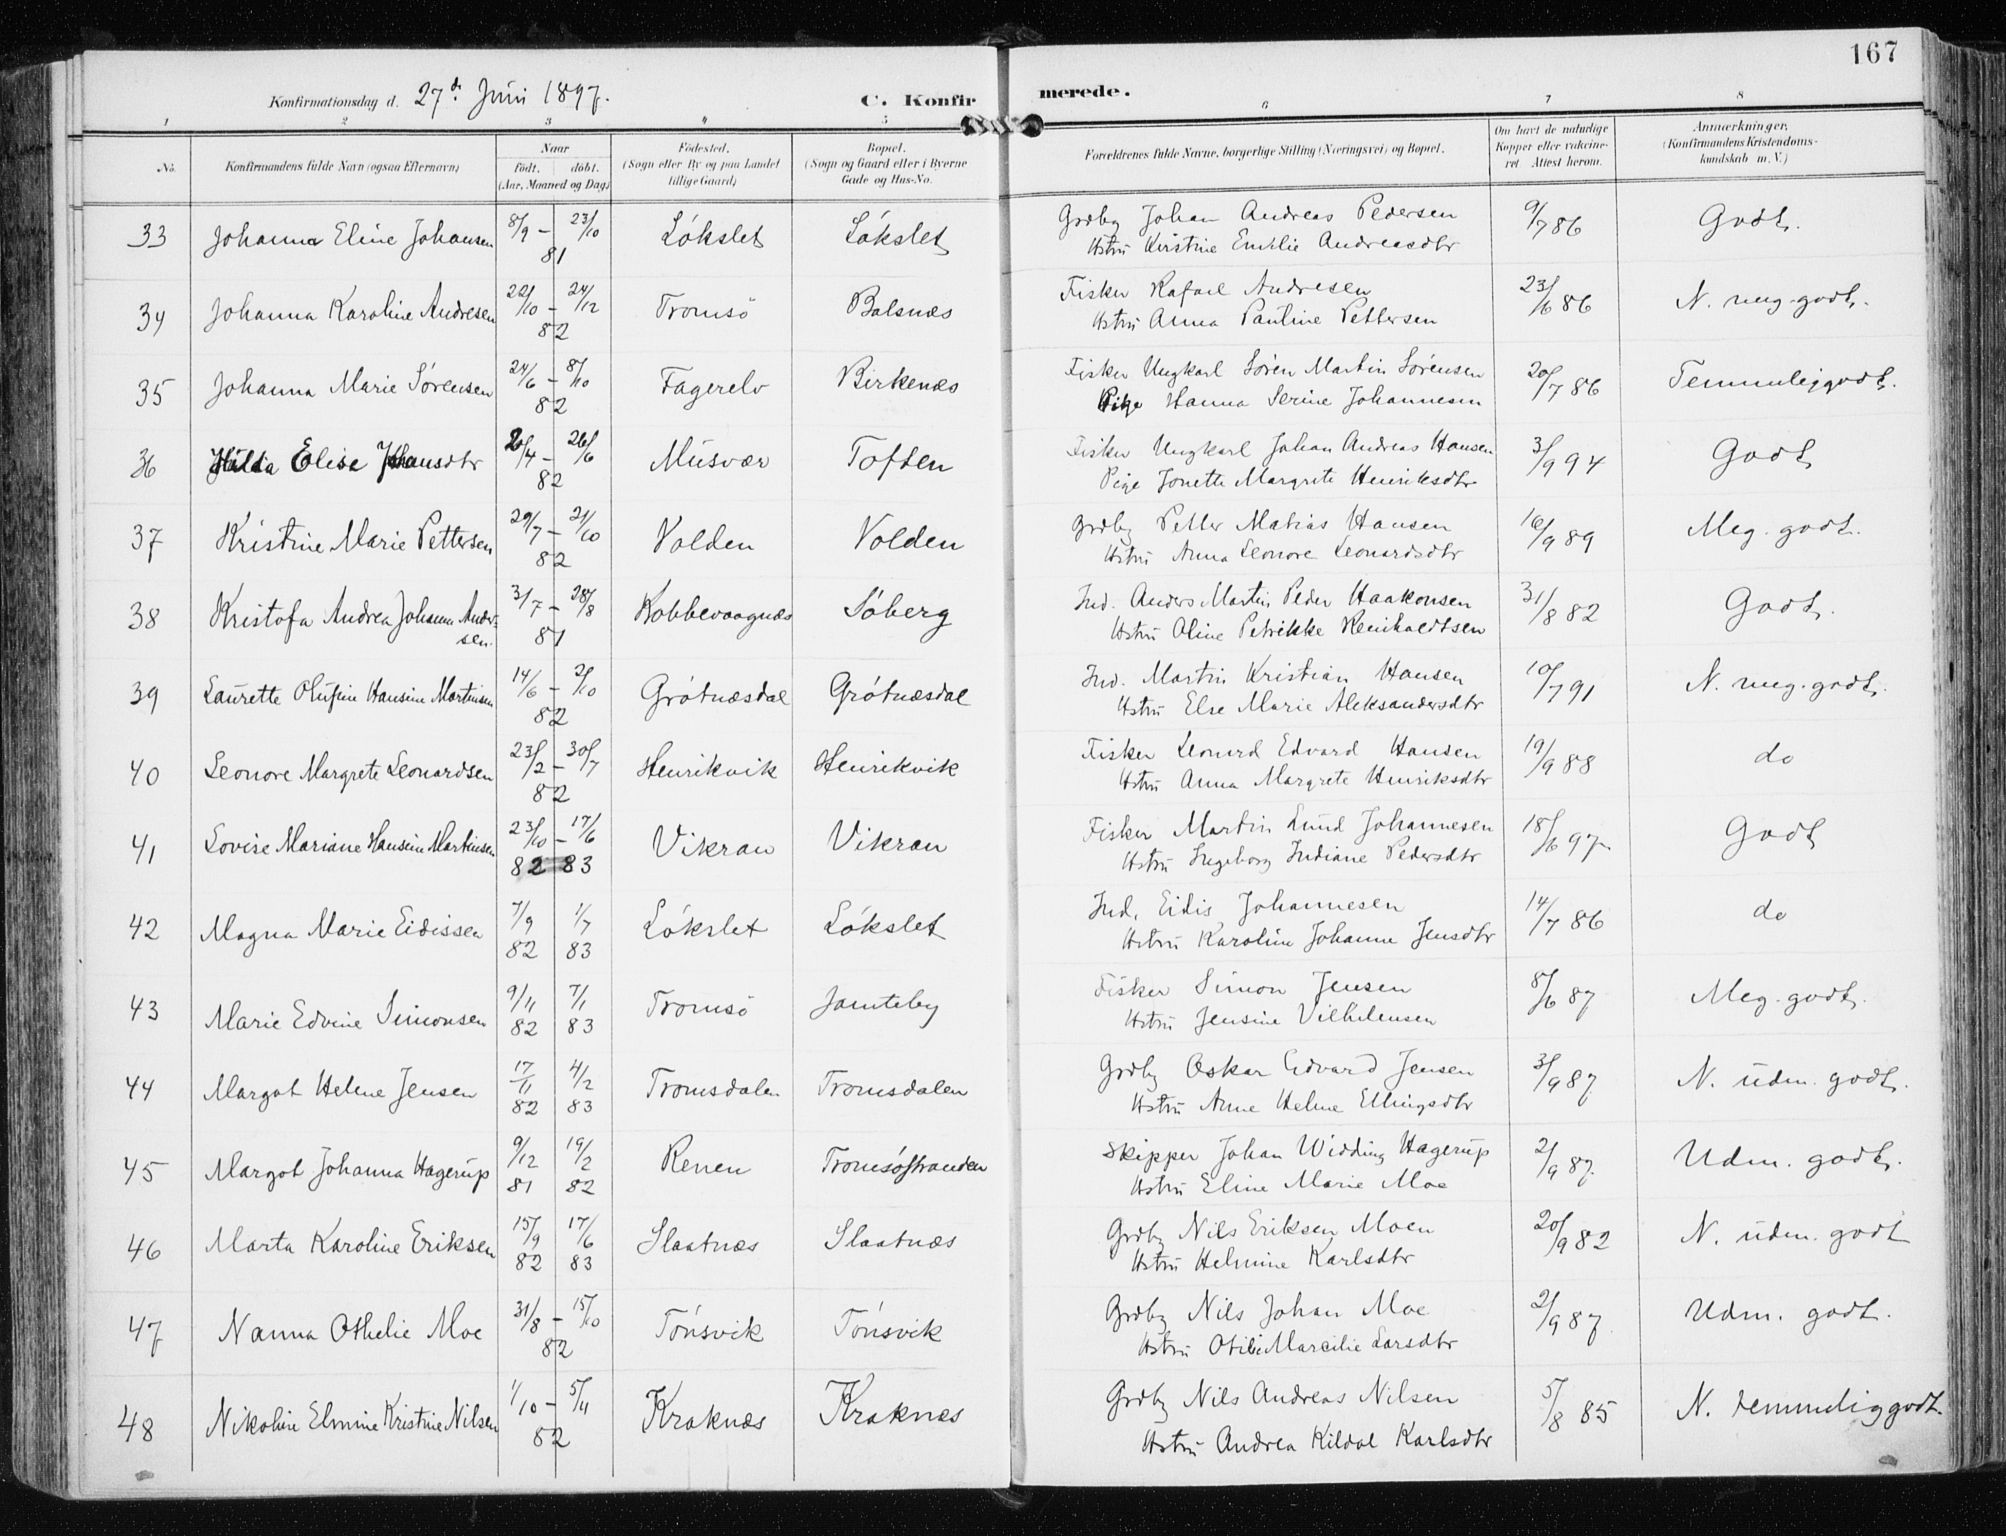 167
Konfirmationsdag d. 27de Juni 1897.
C. Konfirmerede.
1 2 3 4 5 6 7 8
No. Konfirmandens fulde Navn (ogsaa Efternavn) Naar født. døbt. (Aar, Maaned og Dag) Fødested. (Sogn eller By og paa Landet tillige Gaard) Bopæl. (Sogn og Gaard eller i Byerne Gade og Hus-No. Forældrenes fulde Navne, borgerlige Stilling (Næringsvei) og Bopæl. Om havt de naturlige Kopper eller vaccineret. Attest herom. Anmærkninger. (Konfirmandens Kristendomskundskab m. V.)
33 Johanna Eline Johansen 8/9 – 23/10 81 Løkslet Løkslet Grdbg Johan Andreas Pedersen 9/7 86 Godt.
Hstru Kirstine Emilie Andreasdtr
34 Johanna Karoline Andresen 22/10 – 24/12 82 Tromsö Balsnæs Fisker Rafael Andresen 23/6 86 N. meg. godt.
Hstru Anna Pauline Pettersen
35 Johanna Marie Sørensen 24/6 – 8/10 82 Fagerelv Birkenæs Fisker Ungkarl Søren Martin Sørensen 20/7 86 Temmeliggodt.
Pige Hanna Serine Johannesen
36 Hilda Elise Johansdtr 20/4 – 26/6 82 Musvær Toften Fisker Ungkarl Johan Andreas Hansen 3/9 94 Godt
Pige Jonette Margrete Henriksdtr
37 Kristine Marie Pettersen 29/7 – 21/10 82 Volden Volden Grdbg Petter Matias Hansen 16/9 89 Meg. godt.
Hstru Anna Leonore Leonardsdtr
38 Kristofa Andrea Johanna Andersen. 3/7 – 28/8 81 Kobbevaagnæs Søberg Ind. Anders Martin Peder Haakonsen 31/8 82 Godt.
Hstru Oline Petrikke Reinholdtsen
39 Laurette Olufine Hansine Martinsen 14/6 – 2/10 82 Grøtnæsdal Grøtnæsdal Ind. Martin Kristian Hansen 10/7 91 N. meg. godt.
Hstru Else Marie Aleksandersdtr
40 Leonore Margrete Leonardsen 23/2 – 30/7 82 Henrikvik Henrikvik Fisker Leonard Edvard Hansen 19/9 88 do
Hstru Anna Margrete Henriksdtr
41 Lovise Mariane Hansine Martinsen 23/10 – 17/6 82 83 Vikran Vikran Fisker Martin Lund Johannesen 18/6 97 Godt
Hstru Ingeborg Indiane Pedersdtr
42 Magna Marie Eidissen 7/9 82 1/7 83 Løkslet Løkslet Ind. Eidis Johannesen 14/7 86 do
Hstru Karoline Johanne Jensdtr
43 Marie Edvine Simonsen 9/11 82 7/1 83 Tromsö Jamteby Fisker Simon Jensen 8/6 87 Meg. godt.
Hstru Jensine Vilhelmsen
44 Margot Helene Jensen 17/11 82 4/2 83 Tromsdalen Tromsdalen Grdbg Oskar Edvard Jensen 3/9 87 N. udm. godt.
Hstru Anne Helene Ellingsdtr
45 Margot Johanna Hagerup 9/12 81 19/2 82 Renen Tromsøstranden Skipper Johan Widding Hagerup 2/9 87 Udm. godt.
Hstru Eline Marie Moe
46 Marta Karoline Eriksen 15/9 82 17/6 83 Slaatnæs Slaatnæs Grdbg Nils Eriksen Moen 20/9 82 N. udm. godt
Hstru Helmine Karlsdtr
47 Nanna Othelie Moe 31/8 – 15/10 82 Tønsvik Tønsvik Grdbg Nils Johan Moe 2/9 87. Udm. godt.
Hstru Otilie Marcilie Larsdtr
48 Nikoline Elmine Kristine Nilsen 1/10 – 5/11 82 Kraknæs Kraknæs Grdbg Nils Andreas Nilsen 5/8 85 N. temmeliggodt.
Hstru Andrea Kildal Karlsdtr